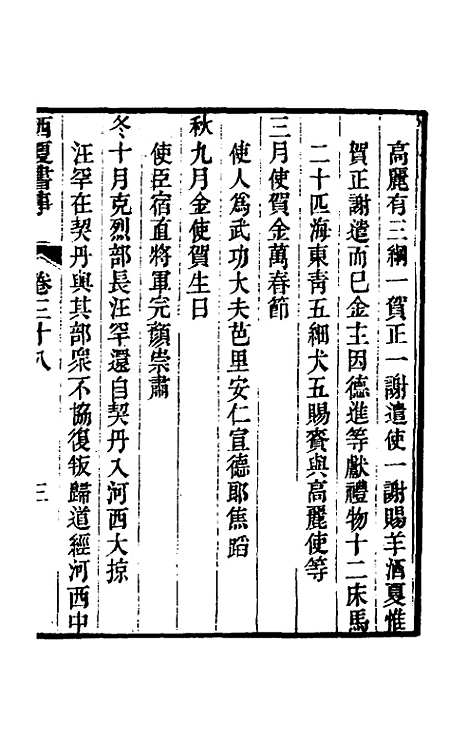 高麗有三綱一賀正一謝遣使一謝賜羊酒夏惟
賀正謝遣而已金主因德進等獻禮物十二床馬
二十匹海東青五細犬五賜賚與高麗使等
三月使賀金萬春節
使人為武功大夫芭里安仁宣德郎焦蹈
秋九月金使賀生日
使臣宿直將軍完顏崇肅
冬十月克烈部長汪罕還自契丹入河西大掠
汪罕在契丹與其部眾不協復叛歸道經河西中
西夏書事 卷三十八 三